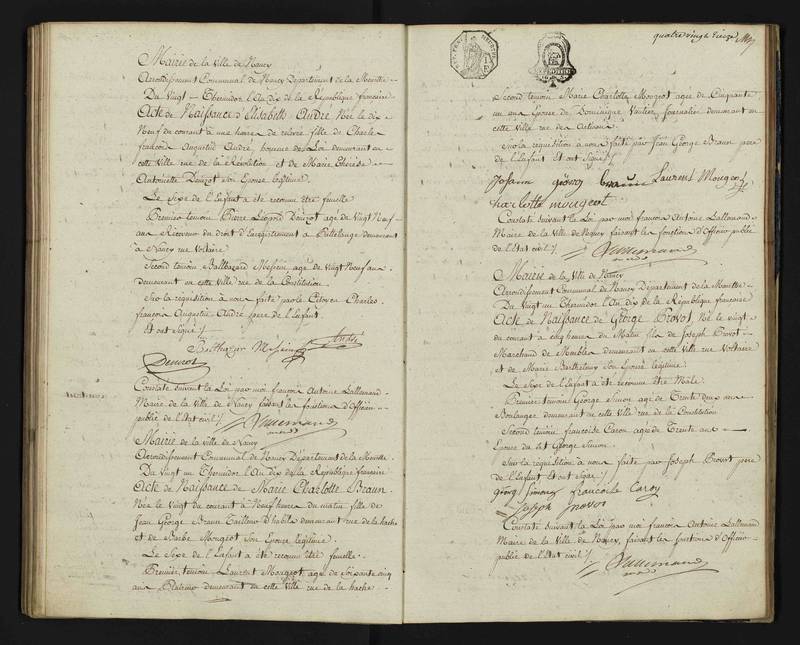 Mairie de la Ville de Nancy
Arrondissement Communal de Nancy Département de la Meurthe
Du Vingt Thermidor l'An dix de la République française
Acte de Naissance d'Elisabeth André Née le dix
Neuf du courant à une heure de relevée fille de Charles
françois Augustin André, homme de Loi demeurant en
cette Ville rue de la Révolution et de Marie Thérèse
Antoinette Denizot son Epouse légitime.
Le Sexe de l'Enfant a été reconnu être femelle
Premier témoin Pierre Denizot age de Vingt Neuf
ans Receveur du droit d'Enregistrement à Puttelange demeurant
à Nancy rue Voltaire
Second témoin Balthazard Messein age de Vingt Neuf ans
demeurant en cette Ville rue de la Constitution
Sur la requisition à nous faite par le Citoyen Charles
françois Augustin André père de l'Enfant
Et ont Signé
Balthazar Messein André
Denizot
Constaté suivant la Loi par moi françois Antoine Lallemand
Maire de la Ville de Nancy faisant les fonctions d'Officier
public de l'Etat civil
Lallemand
Mairie de la Ville de Nancy
Arrondissement Communal de Nancy Département de la Meurthe
Du Vingt un Thermidor l'An dix de la République française
Acte de Naissance de Marie Charlotte Braun
Née le Vingt du courant à Neuf heures du matin fille de
Jean George Braun Tailleur d'habits demeurant rue de la hache
et de Barbe Mougeot son Epouse légitime
Le Sexe de l'Enfant a été reconnu être femelle
Premier témoin Laurent Mougeot age de Soixante cinq
ans demeurant en cette Ville rue de la hache
quatre vingt
Second témoin Marie Charlotte Mougeot agée de Cinquante
un ans Epouse de Dominique Journalier demeurant en
cette Ville rue
Sur la requisition à nous faite par Jean George Braun père
de l'Enfant Et ont Signé
Johann georg braun Laurent Mougeot
charlotte mougeot
Constaté suivant la Loi par moi françois Antoine Lallemand
Maire de la Ville de Nancy faisant les fonctions d'Officier public
de l'Etat civil
Lallemand
Mairie de la Ville de Nancy
Arrondissement Communal de Nancy Département de la Meurthe
Du Vingt un Thermidor l'An dix de la République française
Acte de Naissance de George Provot, Né le vingt
du courant à cinq heures du Matin fils de Joseph Provot
Marchand de Meubles demeurant en cette Ville rue Voltaire
et de Marie Barthelemy son Epouse légitime
Le Sexe de l'Enfant a été reconnu être Mâle
Premier témoin George Simon age de Trente deux ans
Boulanger demeurant en cette Ville rue de la Constitution
Second témoin françoise Caron agée de Trente ans
Epouse du dit George Simon
Sur la requisition à nous faite par Joseph Provot père
de l'Enfant Et ont Signé
georg Simon francoise Caron
Joseph provot
Constaté suivant la Loi par moi françois Antoine Lallemand
Maire de la Ville de Nancy, faisant les fonctions d'Officier
public de l'Etat civil
Lallemand